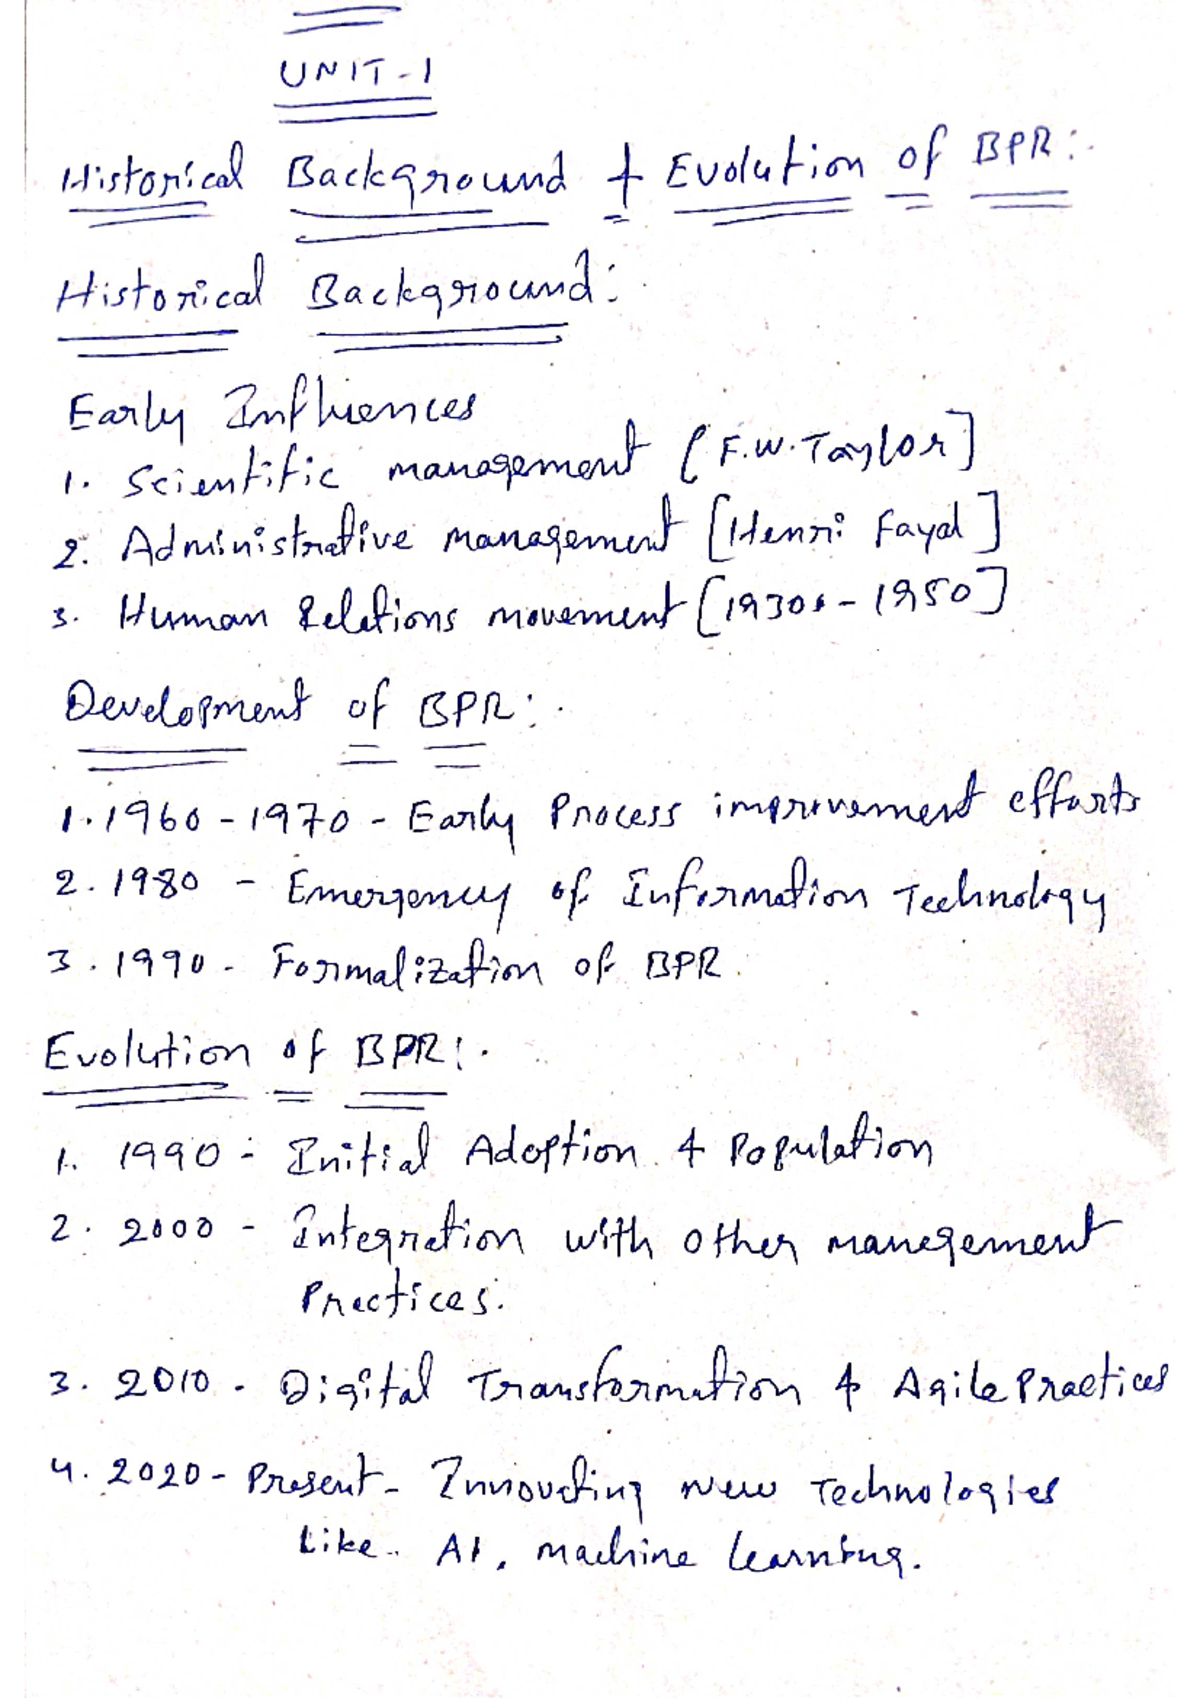 UNIT-1
Historical Background & Evolution of BPR:-
Historical Background:
Early Influences
1. Scientific management [F.W. Taylor]
2. Administrative management [Henri Fayol]
3. Human Relations movement [1930s-1950]
Development of BPR:
1. 1960-1970 - Early Process improvement efforts
2. 1980 - Emergency of Information Technology
3. 1990 - Formalization of BPR.
Evolution of BPR:
1. 1990 - Initial Adoption & Population
2. 2000 - Integration with other management
Practices.
3. 2010 - Digital Transformation & Agile Practices
4. 2020 - Present - Innovating new Technologies
Like.. AI, machine learning.